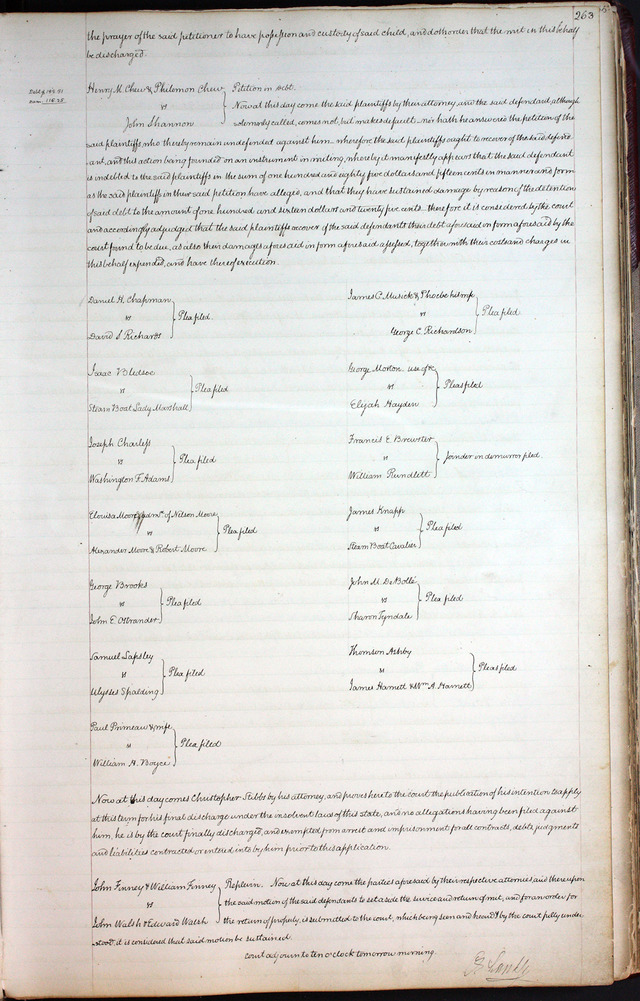 263
the prayer of the said petitioner to have possession and custody of said child, and doth order that the writ in this behalf
be discharged.
Debt $185.15
Dam. 116.25
Henry M. Chew & Philemon Chew
vs
John Shannon
Petition in debt.
Now at this day come the said plaintiffs by their attorney, and the said defendant, although
solemnly called, comes not, but makes default nor hath he answered the petition of the
said plaintiffs who thereby remain undefended against him wherefore the said plaintiffs ought to recover of the said defend-
ant, and this action being founded on an instrument in writing, whereby it manifestly appears that the said defendant
is indebted to the said plaintiffs in the sum of one hundred and eighty five dollars and fifteen cents in manner and form
as the said plaintiffs in their said petition have alleged, and that they have sustained damage by reason of the detention
of said debt to the amount of one hundred and sixteen dollars and twenty five cents therefore it is considered by the court
and accordingly adjudged that the said plaintiffs recover of the said defendant their debt aforesaid in form aforesaid by the
court found to be due, as also their damages aforesaid in form aforesaid assessed, together with their costs and charges in
this behalf expended, and have thereof execution.
Daniel H. Chapman
vs
David S. Richards
Plea filed
James C. Musick & Phoebe his wife
vs
George C. Richardson
Plea filed
Isaac Bledsoe
vs
Steam Boat Lady Marshall
Plea filed
George Morton use of &c
vs
Elijah Hayden
Pleas filed
Joseph Charless
vs
Washington F. Adams
Plea filed
Francis E. Brewster
vs
William Rundlett
Joinder in demurrer filed.
Elouisa Moore adm. of Nelson Moore
vs
Alexander Moore & Robert Moore
Plea filed
James Knapp
vs
Steam Boat Cavalier
Plea filed
George Brooks
vs
John E. Ostrander
Plea filed
John M. DeBolle
vs
Sharon Tyndale
Plea filed
Samuel Lapsley
vs
Ulysses Spalding
Plea filed
Thomson Ashby
vs
James Harnett & Wm A. Harnett
Pleas filed
Paul Primeau & wife
vs
William A. Boyce
Plea filed
Now at this day comes Christopher Stibbs by his attorney, and proves here to the court the publication of his intention to apply
at this term for his final discharge under the insolvent laws of this state, and no allegations having been filed against
him, he is by the court finally discharged, and exempted from arrest and imprisonment for all contracts, debts, judgments
and liabilities contracted or entered into by him prior to this application.
John Finney & William Finney
vs
John Walsh & Edward Walsh
Replevin. Now at this day come the parties aforesaid by their respective attornies and thereupon
the said motion of the said defendants to set aside the service and return of writ, and for an order for
the return of property, is submitted to the court, which being seen and heard & by the court fully under
stood, it is considered that said motion be sustained.
court adjourn to ten o'clock tomorrow morning.